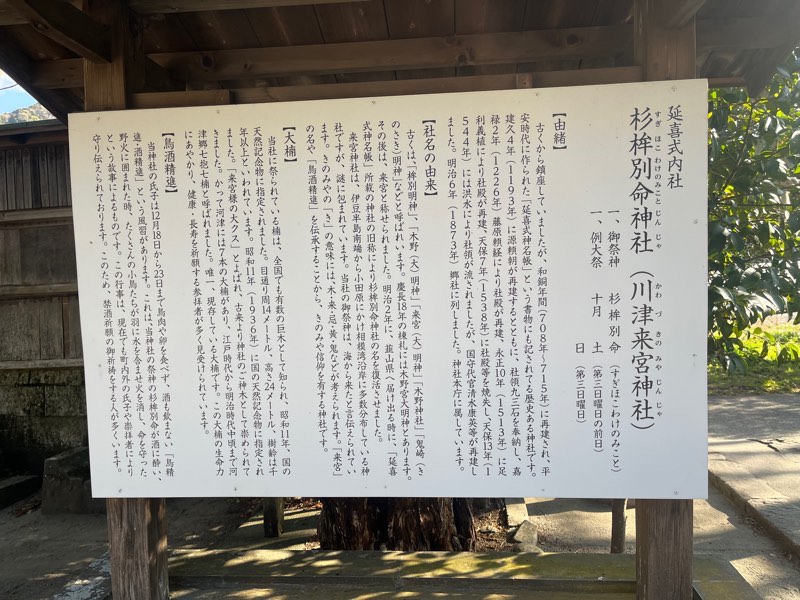 延喜式内社
杉桙別命神社（川津来宮神社）
すぎ ほこ わけのみこと じん じゃ かわ づ きの みや じん じゃ
一、御祭神 杉桙別命（すぎほこわけのみこと）
一、例大祭 十月 土（第三日曜日の前日）
日（第三日曜日）
【由緒】
古くから鎮座していましたが、和銅年間（708年～715年）に再建され、平
安時代に作られた「延喜式神名帳」という書物にも記されてる歴史ある神社です。
建久4年（1193年）に源頼朝が再建するとともに、社領九三石を奉納し、嘉
禄2年（1226年）藤原頼経により社殿が再建、永正10年（1513年）に足
利義植により社殿が再建、天保7年（1538年）に社殿等を焼失し、天保15年（1
544年）には洪水により社領が流されましたが、国守代官清水康英等が再建し
ました。明治6年（1873年）、郷社に列しました。神社本庁に属しています。
【社名の由来】
古くは、「桙別明神」、「木野（大）明神」「来宮（大）明神」「木野神社」「鬼崎（き
のさき）明神」などと呼ばれいます。慶長18年の棟札には木野宮大明神とあります。
その後は、来宮と称せられました。明治2年に、韮山県へ届け出る時に、「延喜
式神名帳」所載の神社の旧称により杉桙別命神社の名を復活させました。
来宮神社は、伊豆半島南端から小田原にかけ相模湾沿岸に多数分布している神
社ですが、謎に包まれています。当社の御祭神は、海から来たと言伝えられてい
ます。きのみやの「き」の意味には、木・来・忌・黄・鬼などが考えられます。「来宮」
の名や「鳥酒精進」を伝承することから、きのみや信仰を有する神社です。
【大楠】
当社に祭られている楠は、全国でも有数の巨木として知られ、昭和11年、国の
天然記念物に指定されました。目通り周14メートル、高さ24メートル、樹齢は千
年以上といわれています。昭和11年（1936年）に国の天然記念物に指定され
ました。「来宮様の大クス」とよばれ、古来より神社のご神木として崇められて
きました。かつて河津には7本の大楠があり、江戸時代から明治時代中頃まで河
津郷七抱七楠と呼ばれました。唯一、現存している大楠です。この大楠の生命力
にあやかり、健康・長寿を祈願する参拝者が多く見受けられています。
【鳥酒精進】
当神社の氏子は12月18日から23日まで鳥肉や卵を食べず、酒も飲まない「鳥精
進・酒精進」という風習があります。これは、当神社の祭神の杉桙別命が酒に酔い、
野火に囲まれた時、たくさんの小鳥たちが羽に水を含ませ火を消し、命を守った
という故事によるものです。この行事は、現在でも町内外の氏子や崇拝者により
守り伝えられております。このため、禁酒祈願の御祈祷をする人が多くいます。